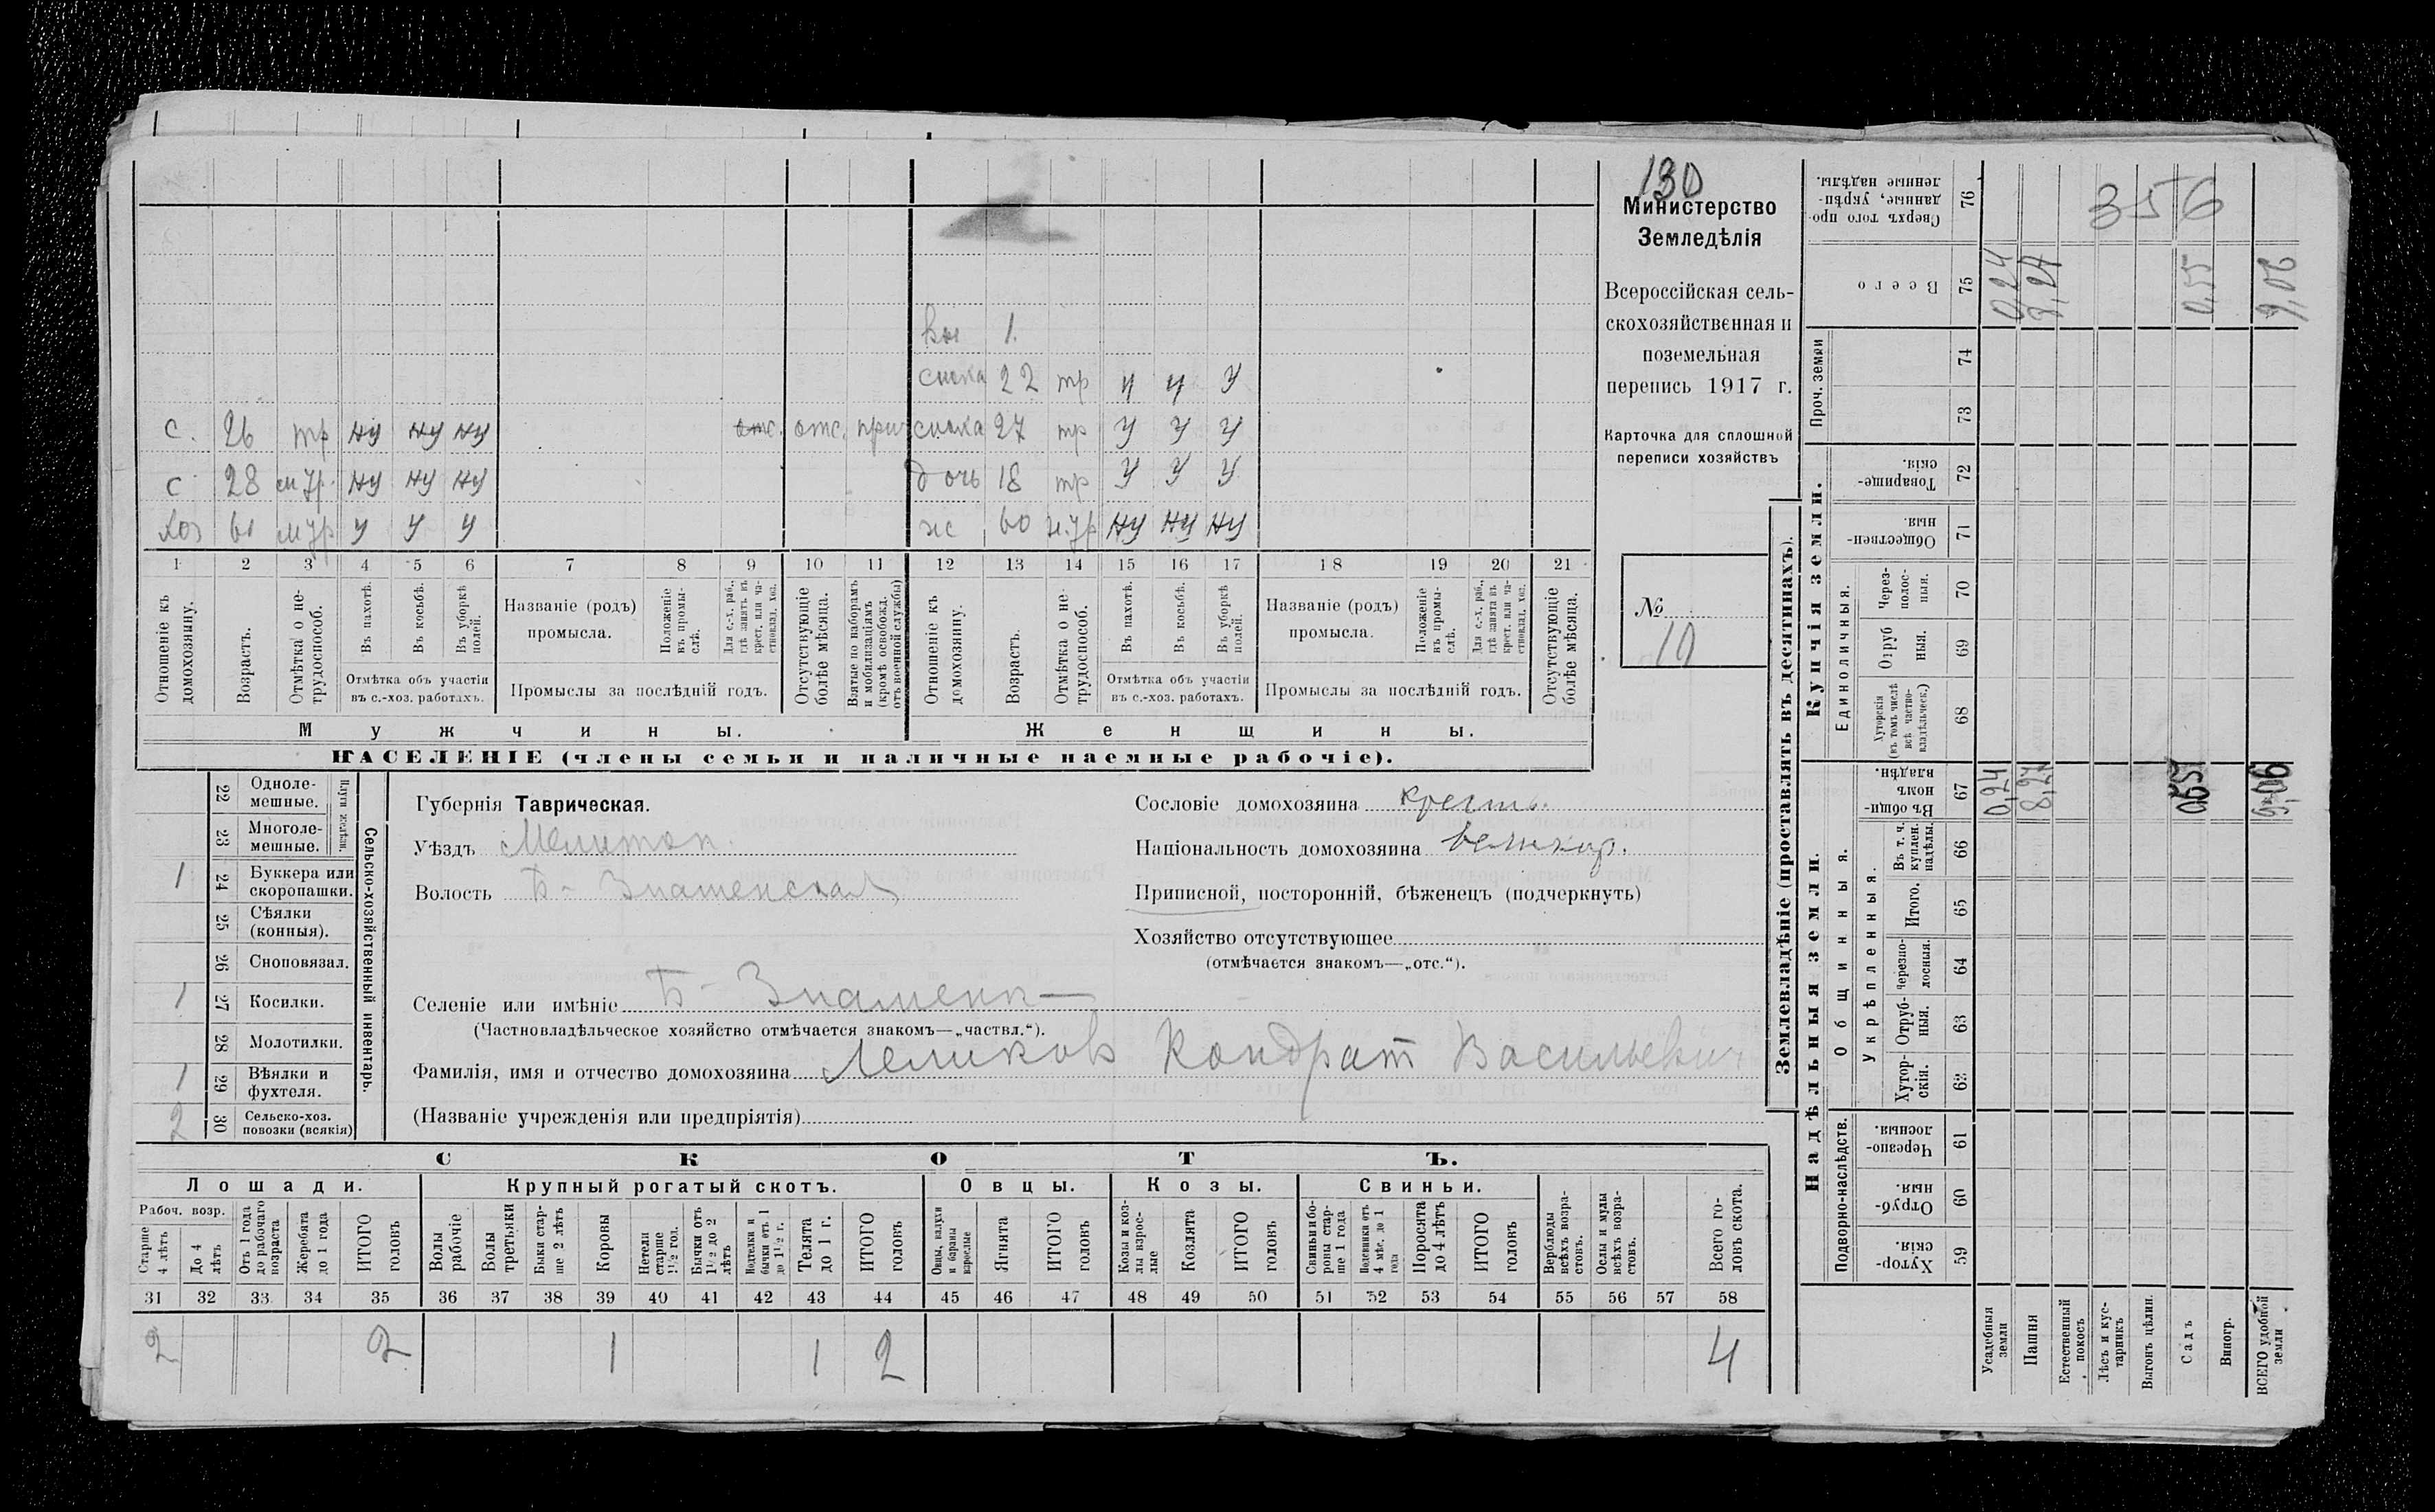 130
Министерство
Земледѣлія
Всероссійская сель-
скохозяйственная и
поземельная
перепись 1917 г.
Карточка для сплошной
переписи хозяйствъ
№
10
вн 1.
сноха 22 тр у у У
с. 26 тр ну ну ну отс. отс. приз сноха 27 тр У У У
с 28 н тр. ну ну ну дочь 18 тр У У У
хоз 61 н тр у у у ж 60 н.тр ну ну ну
1 2 3 4 5 6 7 8 9 10 11 12 13 14 15 16 17 18 19 20 21
Отношеніе къ домохозяину.
Возрастъ.
Отмѣтка о не-трудоспособ.
Въ пахотѣ.
Въ косьбѣ.
Въ уборкѣ полей.
Отмѣтка объ участіи въ с.-хоз. работахъ.
Названіе (родъ) промысла.
Положеніе въ промы-слѣ.
Для с.-х. раб., гдѣ занятъ въ крест. или ча-стновлад. хоз.
Промыслы за послѣдній годъ.
Отсутствующіе болѣе мѣсяца.
Взятые по наборамъ и мобилизаціямъ (кромѣ освобожд. отъ военной службы)
Отношеніе къ домохозяину.
Возрастъ.
Отмѣтка о не-трудоспособ.
Въ пахотѣ.
Въ косьбѣ.
Въ уборкѣ полей.
Отмѣтка объ участіи въ с.-хоз. работахъ.
Названіе (родъ) промысла.
Положеніе въ промы-слѣ.
Для с.-х. раб., гдѣ занята въ крест. или ча-стновлад. хоз.
Промыслы за послѣдній годъ.
Отсутствующіе болѣе мѣсяца.
Мужчины. Женщины.
НАСЕЛЕНІЕ (члены семьи и наличные наемные рабочіе).
Сельско-хозяйственный инвентарь.
Плуги желѣзн.
22 Одноле-мешные.
23 Многоле-мешные.
1 24 Буккера или скоропашки.
25 Сѣялки (конныя).
26 Сноповязал.
1 27 Косилки.
28 Молотилки.
1 29 Вѣялки и фухтеля.
2 30 Сельско-хоз. повозки (всякія)
Губернія Таврическая.
Уѣздъ Мелитоп.
Волость Б-Знаменская
Селеніе или имѣніе Б-Знаменк
(Частновладѣльческое хозяйство отмѣчается знакомъ—„частвл.“).
Фамилія, имя и отчество домохозяина Лемиков Кондрат Васильевич
(Названіе учрежденія или предпріятія)
Сословіе домохозяина крестьь.
Національность домохозяина великор.
Приписной, посторонній, бѣженецъ (подчеркнуть)
Хозяйство отсутствующее
(отмѣчается знакомъ—„отс.“).
СКОТЪ.
Лошади. Крупный рогатый скотъ. Овцы. Козы. Свиньи.
Рабоч. возр.
Старше 4 лѣтъ
До 4 лѣтъ
Отъ 1 года до рабочаго возраста
Жеребята до 1 года
ИТОГО головъ
Волы рабочіе
Волы третьяки
Быки стар-ше 2 лѣтъ
Коровы
Нетели старше 1½ год.
Бычки отъ 1½ до 2 лѣтъ
Подтелки и бычки отъ 1 до 1½ г.
Телята до 1 г.
ИТОГО головъ
Овцы, валухи и бараны взрослые
Ягнята
ИТОГО головъ
Козы и коз-лы взрос-лые
Козлята
ИТОГО головъ
Свиньи и бо-ровы стар-ше 1 года
Подсвинки отъ 4 мѣс. до 1 года
Поросята до 4 лѣтъ
ИТОГО головъ
Верблюды всѣхъ возра-стовъ.
Ослы и мулы всѣхъ возра-стовъ.
Всего го-ловъ скота.
31 32 33 34 35 36 37 38 39 40 41 42 43 44 45 46 47 48 49 50 51 52 53 54 55 56 57 58
2 2 1 1 2 4
Землевладѣніе (проставлять въ десятинахъ).
Надѣльныя земли.
Подворно-наслѣдств.
Хутор-скія. 59
Отруб-ныя. 60
Черезпо-лосныя. 61
Общинныя.
Укрѣпленныя.
Хутор-скія. 62
Отруб-ныя. 63
Черезпо-лосныя. 64
Итого. 65
Въ т. ч. куплен. надѣлы. 66
Въ общин-номъ владѣн. 67
Купчія земли.
Единоличныя.
Хуторскія (въ томъ числѣ всѣ частно-владѣльческ.) 68
Отруб ныя. 69
Через-полос-ныя. 70
Обществен-ныя. 71
Товарище-скія. 72
Проч. земли
73 74
Всего 75
Сверхъ того про-данные, укрѣп-ленные надѣлы. 76
356
0,24 8,27 0,55 9,06
0,24 8,27 0,55 9,06
Усадебныя земли
Пашня
Естественный покосъ
Лѣсъ и кус-тарникъ
Выгонъ цѣлин.
Садъ
Виногр.
ВСЕГО удобной земли